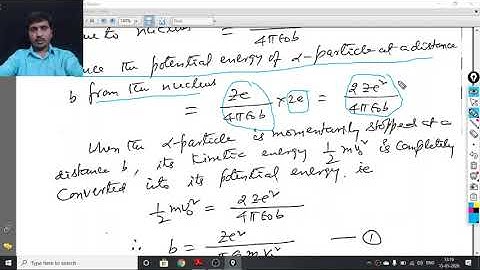 due to nucleus = 4πε₀b
the potential energy of α-particle at a distance
b from the nucleus
= Ze/4πε₀b × 2e = 2Ze²/4πε₀b
When the α-particle is momentarily stopped at a
distance b, its kinetic energy ½mv₀² is completely
converted into its potential energy. ie
½mv₀² = 2Ze²/4πε₀b
∴ b = Ze²/ ①